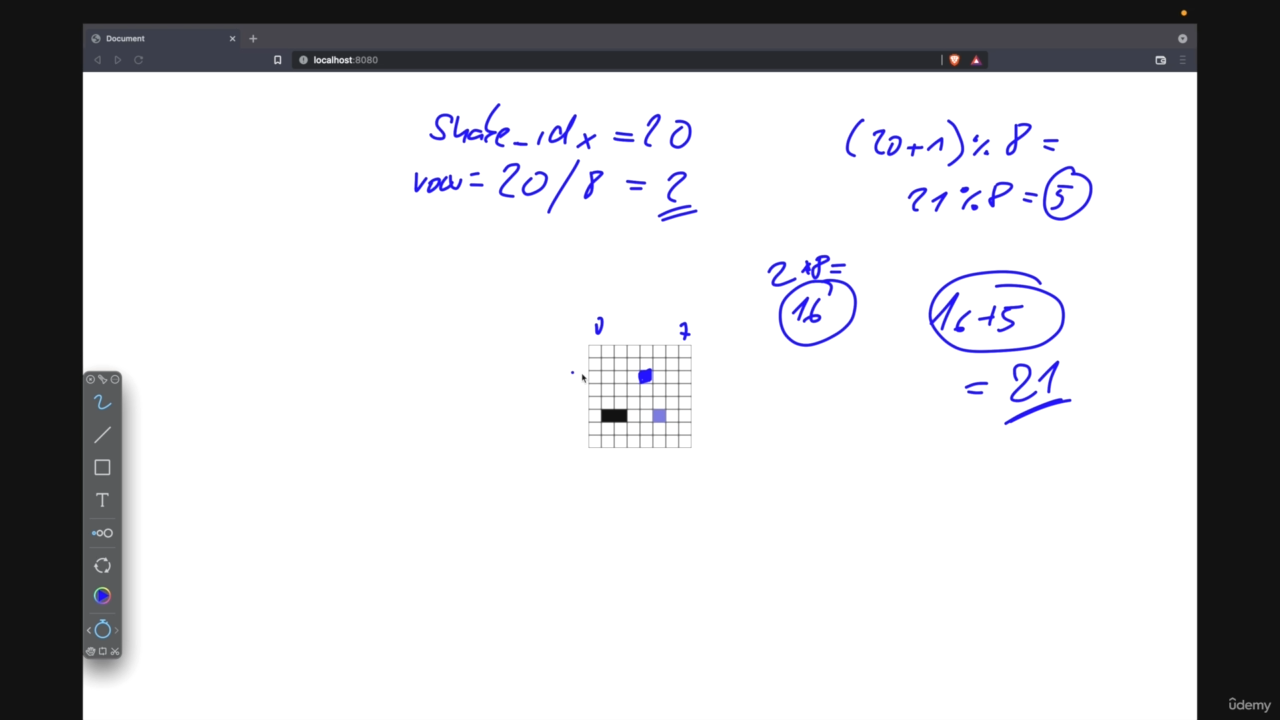 Document
localhost:8080
snake_idx = 20
row = 20/8 = 2
(20+1)%8 =
21%8 = 5
2*8=
16
16+5
= 21
0 7
T
ûdemy